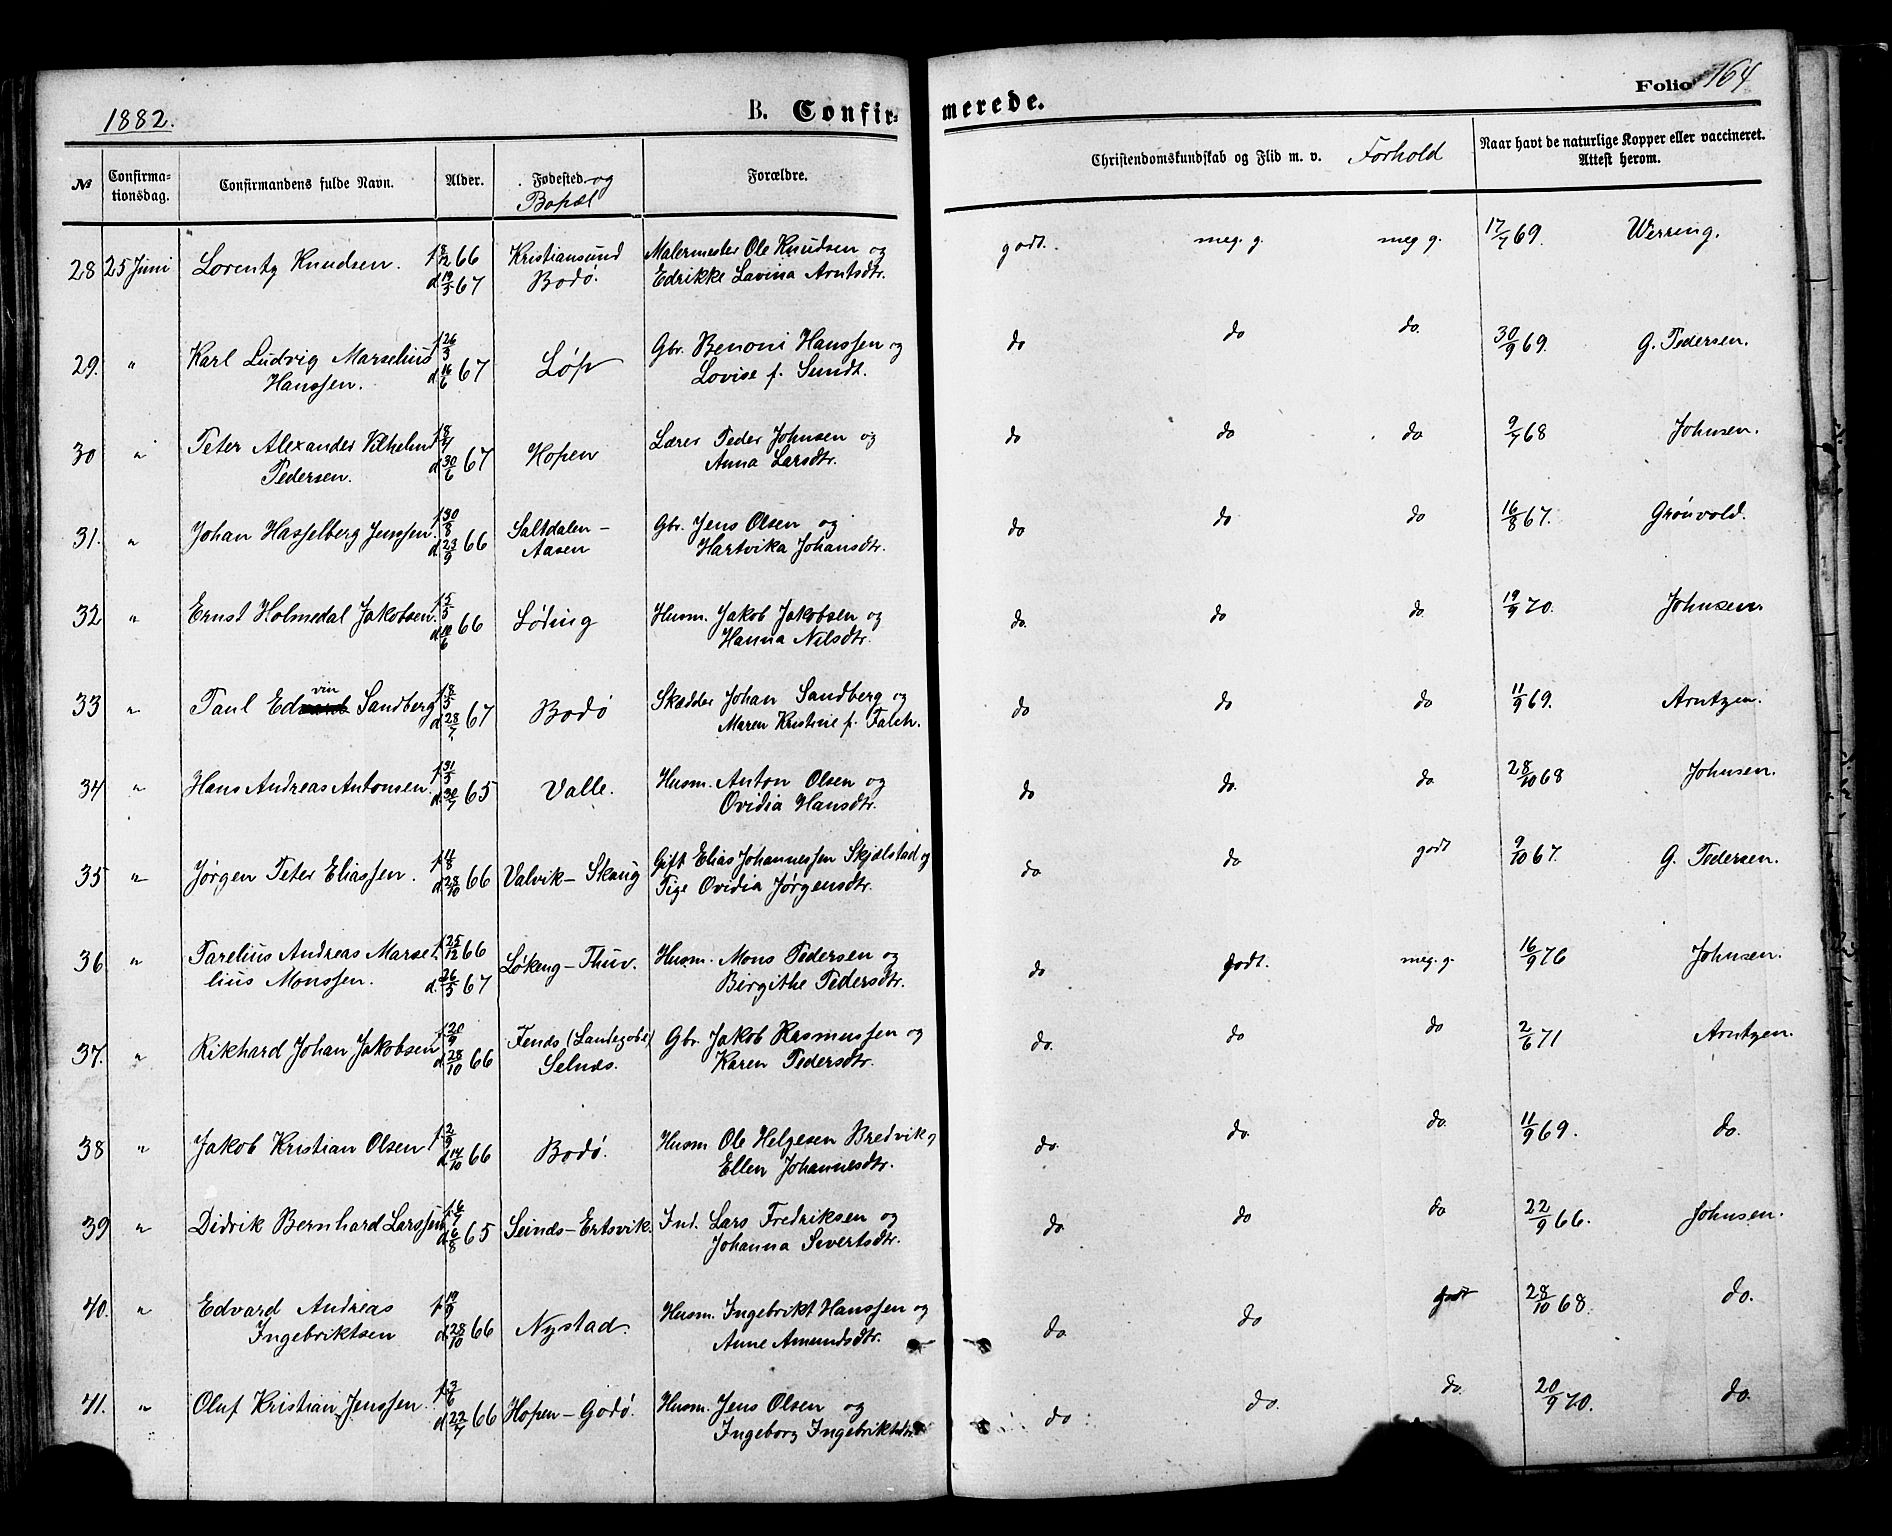 1882. B. Confirmerede. Folio 164
№ Confirmationsdag. Confirmandens fulde Navn. Alder. Fødested og Bopæl Forældre. Christendomskundskab og Flid m. v. Forhold Naar havt de naturlige Kopper eller vaccineret. Attest herom.
28 25 Juni Lorentz Knudsen. f. 18/2 66 Kristiansund Malermester Ole Knudsen og godt. meg. g. meg g. 17/7 69. Werring.
d. 19/3 67 Bodö. Edrikke Lavina Arntsdtr.
29. " Karl Ludvig Marselius f. 26/3 Løp Gbr. Benoni Hanssen og do do do. 30/9 69. G. Pedersen.
Hanssen. d. 16/6 67 Lovise f. Sundt.
30 " Peter Alexander Vilhelm f. 8/4 Hopen Lærer Peder Johnsen og do do do 9/7 68 Johnsen.
Pedersen. d. 30/6 67 Anna Larsdtr.
31. " Johan Hasselberg Jenssen. f. 30/8 Saltdalen - Gbr. Jens Olsen og do do do 16/8 67. Grönvold.
d. 23/9 66 Aasen Hartvika Johansdtr.
32 " Ernst Holmedal Jakobsen. f. 5/5 Løding Husm. Jakob Jakobsen og do. do do 19/9 70. Johnsen.
d. 10/6 66 Hanna Nilsdtr.
33 " Paul Edvin Sandberg f. 18/5 Bodø Skrædder Johan Sandberg og do do do 11/9 69. Arntzen.
d. 28/7 67 Maren Kristine f. Falch.
34 " Hans Andreas Antonsen. f. 31/5 Valle. Husm. Anton Olsen og do do. do 28/10 68 Johnsen.
d. 30/7 65 Ovidia Hansdtr.
35 " Jørgen Peter Eliassen. f. 11/8 Valvik - Skaug Gift Elias Johannessen Skjælstad og do do godt 9/10 67. G. Pedersen.
d. 28/10 66 Pige Ovidia Jørgensdtr.
36 " Parelius Andreas Marse- f. 25/12 66 Løkeng - Thuv. Husm. Mons Pedersen og do godt. meg. g. 16/9 76 Johnsen.
lius Monssen. d. 26/3 67 Birgithe Pedersdtr.
37. " Rikhard Johan Jakobsen f. 20/9 Gbr. Jakob Rasmussen og do. do do 2/6 71 Arntzen.
d. 28/10 66 Selnds. Karen Pedersdtr.
38 " Jakob Kristian Olsen f. 2/9 Bodø. Husm. Ole Helgesen Bredvik og do. do. do. 11/9 69. do.
d. 14/10 66 Ellen Johannesdtr.
39 " Didrik Bernhard Larssen f. 6/7 Seinds - Ertsvik. Ind. Lars Fredriksen og do do do 22/9 66. Johnsen.
d. 6/8 65 Johanna Sivertsdtr.
40. " Edvard Andreas f. 19/9 Nystad. Husm. Ingebrikt Hanssen og do do godt 28/10 68. do.
Ingebriktsen d. 28/10 66 Anne Amundsdtr.
41. " Oluf Kristian Jenssen. f. 3/6 Hopen - Godø. Husm. Jens Olsen og do do. do. 20/9 70. do.
d. 22/7 66 Ingeborg Ingebriktsdtr.